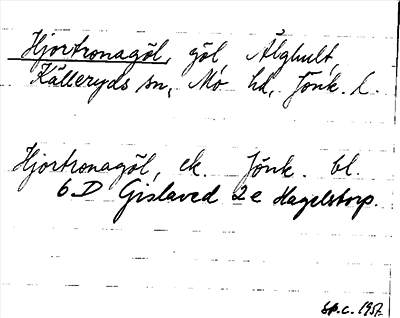 Hjortronagöl, göl, Älghult,
Kålleryds sn, Mo hd, Jönk. l.
Hjortronagöl, ek. Jönk. bl.
6 D Gislaved 2 e Hagelstorp.
1957.